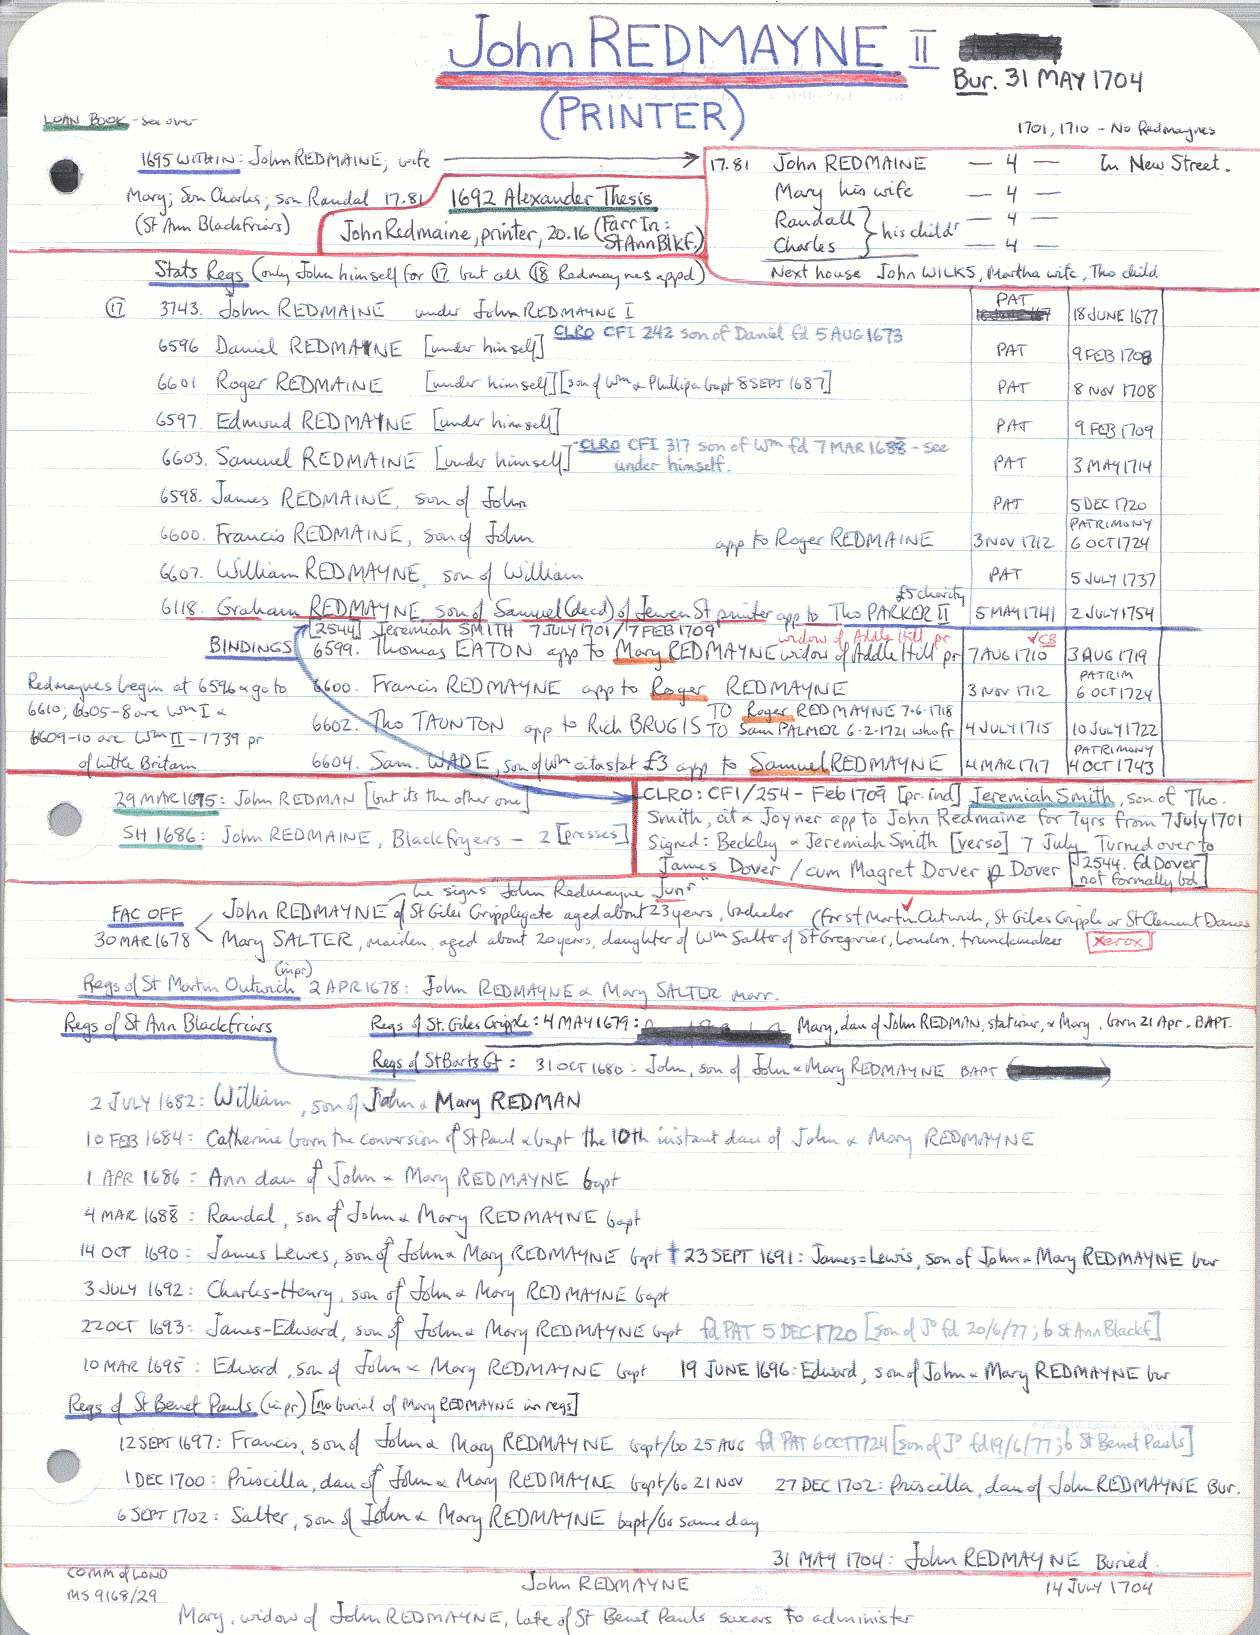 John REDMAYNE II
Bur. 31 MAY 1704
(PRINTER)
LOAN BOOK - see over
1701, 1710 - No Redmaynes
1695 WITHIN: John REDMAINE, wife
Mary; Son Charles; son Randal 17.81
(St Ann Blackfriars)
1692 Alexander Thesis
John Redmaine, printer, 20.16 (Farr In:
St Ann Blkf.)
17.81 John REDMAINE — 4 — In New Street.
Mary his wife — 4 —
Randall } his childr — 4 —
Charles — 4 —
Next house John WILKS, Martha wife, Tho child
Stats Regs (only John himself for 17 but all 18 Redmaynes appd)
17 3743. John REDMAINE under John REDMAYNE I PAT 18 JUNE 1677
6596 Daniel REDMAYNE [under himself] CLRO CFI 242 son of Daniel fd 5 AUG 1673 PAT 9 FEB 1708
6601 Roger REDMAINE [under himself] [son of Wm & Phillipa bapt 8 SEPT 1687] PAT 8 NOV 1708
6597. Edmund REDMAYNE [under himself] PAT 9 FEB 1709
6603. Samuel REDMAINE [under himself] CLRO CFI 317 son of Wm fd 7 MAR 1688 - see
under himself. PAT 3 MAY 1714
6598. James REDMAINE, son of John PAT 5 DEC 1720
6600. Francis REDMAINE, son of John app to Roger REDMAINE 3 NOV 1712 PATRIMONY 6 OCT 1724
6607. William REDMAYNE, son of William PAT 5 JULY 1737
£5 charity
6118. Graham REDMAYNE, son of Samuel (decd) of Jewen St printer app to Tho PARKER II 5 MAY 1741 2 JULY 1754
[2544] Jeremiah SMITH 7 JULY 1701/7 FEB 1709
widow of Addle Hill pr ✓CB
BINDINGS 6599. Thomas EATON app to Mary REDMAYNE widow of Addle Hill pr 7 AUG 1710 3 AUG 1719
Redmaynes begin at 6596 & go to
6610; 6605-8 are Wm I &
6609-10 are Wm II - 1739 pr
of Little Britain
6600. Francis REDMAYNE app to Roger REDMAYNE 3 NOV 1712 PATRIM 6 OCT 1724
TO Roger REDMAYNE 7.6.1718
6602. Tho TAUNTON app to Rich BRUGIS TO Sam PALMER 6.2.1721 who fr 4 JULY 1715 10 JULY 1722
6604. Sam. WADE, son of Wm cit & stat £3 app to Samuel REDMAYNE 4 MAR 1717 PATRIMONY 4 OCT 1743
29 MAR 1675: John REDMAN [but its the other one]
SH 1686: John REDMAINE, Blackfryers - 2 [presses]
CLRO: CFI/254 - Feb 1709 [pr. ind] Jeremiah Smith, son of Tho.
Smith, cit & Joyner app to John Redmaine for 7 yrs from 7 July 1701
Signed: Beckley & Jeremiah Smith [verso] 7 July Turned over to
James Dover / cum Magret Dover p Dover [2544. fd Dover
not formally bd]
he signs "John Redmayne Junr"
FAC OFF
30 MAR 1678
John REDMAYNE of St Giles Cripplegate aged about 23 years, bachelor (for St Martin Outwich, St Giles Cripple or St Clement Danes
Mary SALTER, maiden, aged about 20 years, daughter of Wm Salter of St Gregories, London, trunckmaker [xerox]
Regs of St Martin Outwich (inpr) 2 APR 1678: John REDMAYNE & Mary SALTER marr.
Regs of St Ann Blackfriars
Regs of St. Giles Cripple: 4 MAY 1679: Mary, dau of John REDMAN, stationer, & Mary, born 21 Apr - BAPT.
Regs of St Barts Gt: 31 OCT 1680: John, son of John & Mary REDMAYNE BAPT
2 JULY 1682: William, son of John & Mary REDMAN
10 FEB 1684: Catherine born the conversion of St Paul & bapt the 10th instant dau of John & Mary REDMAYNE
1 APR 1686: Ann dau of John & Mary REDMAYNE bapt
4 MAR 1688: Randal, son of John & Mary REDMAYNE bapt
14 OCT 1690: James Lewes, son of John & Mary REDMAYNE bapt † 23 SEPT 1691: James=Lewis, son of John & Mary REDMAYNE bur
3 JULY 1692: Charles-Henry, son of John & Mary REDMAYNE bapt
22 OCT 1693: James-Edward, son of John & Mary REDMAYNE bapt fd PAT 5 DEC 1720 [son of Jo fd 20/6/77; b St Ann Blackf]
10 MAR 1695: Edward, son of John & Mary REDMAYNE bapt 19 JUNE 1696: Edward, son of John & Mary REDMAYNE bur
Regs of St Benet Pauls (inpr) [no burial of Mary REDMAYNE in regs]
12 SEPT 1697: Francis, son of John & Mary REDMAYNE bapt/bo 25 AUG fd PAT 6 OCT 1724 [son of Jo fd 19/6/77; b St Benet Pauls]
1 DEC 1700: Priscilla, dau of John & Mary REDMAYNE bapt/bo 21 Nov 27 DEC 1702: Priscilla, dau of John REDMAYNE Bur.
6 SEPT 1702: Salter, son of John & Mary REDMAYNE bapt/bo same day
31 MAY 1704: John REDMAYNE Buried.
COMM of LOND
MS 9168/29
John REDMAYNE 14 JULY 1704
Mary, widow of John REDMAYNE, late of St Benet Pauls swears to administer